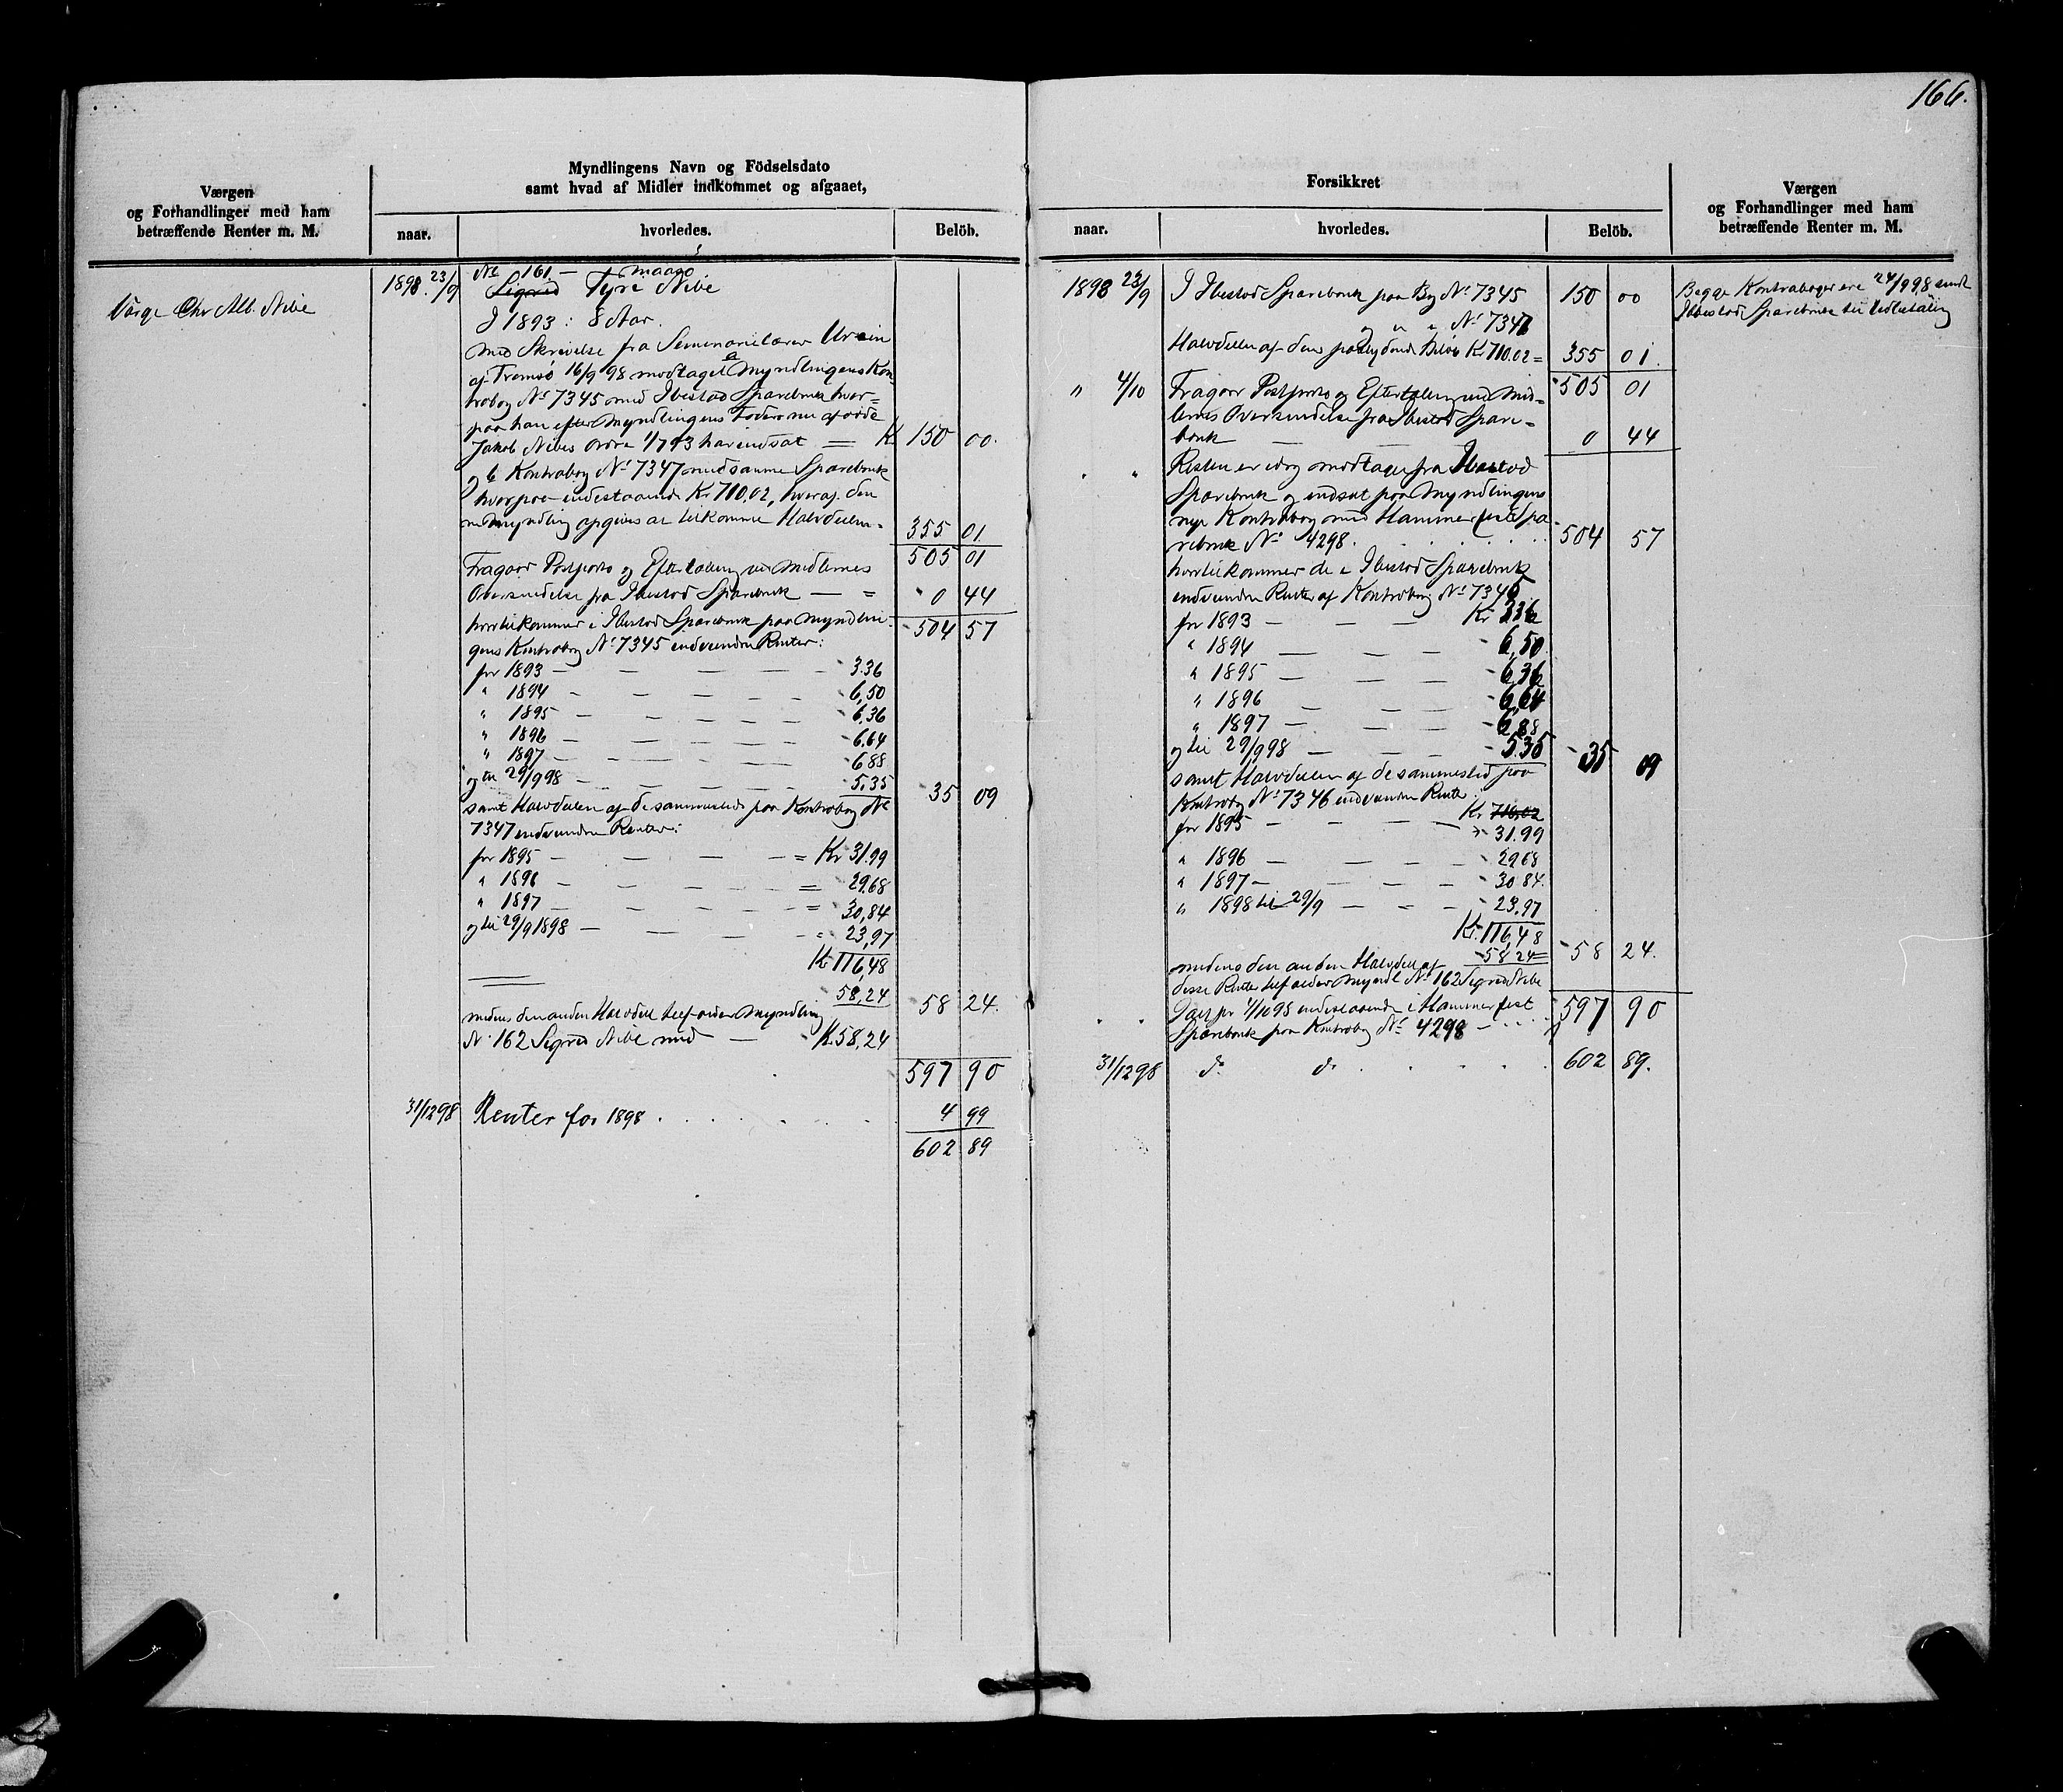 166.
Værgen
og Forhandlinger med ham
betræffende Renter m. M.
Myndlingens Navn og Födselsdato
samt hvad af Midler indkommet og afgaaet,
naar.
hvorledes.
Belöb.
Værge Chr Alb. Nibe
1898. 23/9
No 161. — maago
Sigrid Tyra Nibe
I 1893: 8 Aar.
med Skrivelse fra Seminarielærer Ursin
af Tromsö 16/9 98 modtaget Myndlingens Kon-
trabog No 7345 med Ibestad Sparebank hvor-
paa han efter Myndlingens Faders nu afdöde
Jakob Nibes Ordre 1/7 93 har indsat — Kr 150 00.
og Kontrabog No 7347 med samme Sparebank
hvorpaa indestaaende Kr 710,02, hvoraf den
ne Myndling opgives at tilkomme Halvdelen - 355 01
505 01
Fragaar Postporto og Eftertælling ved Midlernes
Oversendelse fra Ibestad Sparebank — = - 0 44
hvortilkommer i Ibestad Sparebank paa Myndlin-
- 504 57
gens Kontrabog No 7345 indvundne Renter:
for 1893 — — — — - 3.36
" 1894 - — — — - 6,50
" 1895 — — — — - 6.36
" 1896 — — — — - 6.64
" 1897 — — — — - 6.88
og til 29/9 98 — — — - 5.35
- 35 09
samt Halvdelen af de sammesteds paa Kontrabog No
7347 indvundne Renter:
for 1895 — — — — = Kr 31.99
" 1896 — — — — = 29.68
" 1897 — — — — = 30,84
og til 29/9 1898 — — — - 23,97
Kr 116,48
58,24
- 58 24.
medens den anden Halvdel tilfalder Myndling
No 162 Sigrid Nibe med — - Kr 58,24
597 90
31/12 98 Renter for 1898 . . . . . 4 99
602 89
Forsikkret
naar.
hvorledes.
Belöb.
Værgen
og Forhandlinger med ham
betræffende Renter m. M.
1898 23/9 I Ibestad Sparebank paa Bog No 7345 150 00
og " " No 7347
Halvdelen af den paalydende Belöb Kr 710.02 = 355 01.
- 505 01
" 4/10 Fragaar Postporto og Eftertælling ved Mid-
lernes Oversendelse fra Ibestad Spare-
bank — — — 0 44
" " Resten er idag modtaget fra Ibestad
Sparebank og indsat paa Myndlingens
nye Kontrabog med Hammerfest Spa-
rebank No 4298. . . . . . - 504 57
hvortilkommer de i Ibestad Sparebank
indvundne Renter af Kontrabog No 7345
for 1893 — — — Kr 336
" 1894 — — — - 6,50
" 1895 — — — - 6,36
" 1896 — — — - 6,64
" 1897 — — — - 6,88
og til 29/9 98 — — - 5.35 - 35 09
samt Halvdelen af de sammested paa
Kontrabog No 7346 indvundne Renter:
Kr 710,02
for 1895 — — — — " 31.99
" 1896 — — — — - 29.68
" 1897 — — — — - 30.84.
" 1898 til 29/9 — = — - 23.97
Kr. 116,48
- 58,24 = - 58 24.
medens den anden Halvdel af
disse Renter tilfalder Myndl No 162 Sigrid Nibe
" " pr 4/10 98 indestaaende i Hammerfest
Sparebank paa Kontrabog No 4298 — . . . 597 90
31/12 98 do do . . . . . 602 89.
Begge Kontraboger ere 24/9 98 sendt
Ibbestad Sparebank til Udbetaling